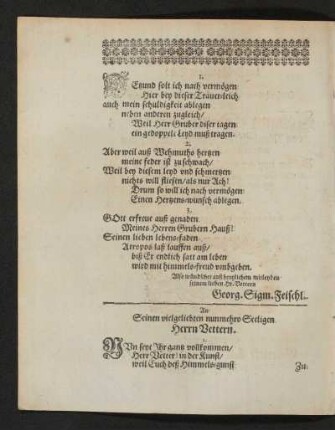 1.
JEtzund solt ich nach vermögen
Hier bey dieser Trauer-leich
auch mein schuldigkeit ablegen
neben anderen zugleich/
Weil Herr Gruber diser tagen
ein gedoppelt Leyd muß tragen.
2.
Aber weil auß Wehmuths hertzen
meine feder ist zu schwach/
Weil bey diesem leyd und schmertzen
nichts will fliessen/als nur Ach!
Drum so will ich nach vermögen
Einen Hertzens-wunsch ablegen.
3.
GOtt erfreue auß genaden
Meines Herren Grubern Hauß!
Seinen lieben lebens-faden
Atropos laß lauffen auß/
biß Er endlich satt am leben
wird mit himmels-freud umbgeben.
Also wünschet auß hertzlichem mitleyden
seinem lieben Hr. Vettern
Georg. Sigm. Feischl.
An
Seinen vielgeliebten nunmehro Seeligen
Herrn Vettern.
NUn seyt Ihr gantz vollkommen/
Herr Vetter! in der Kunst/
weil Euch deß Himmels-gunst
Zu